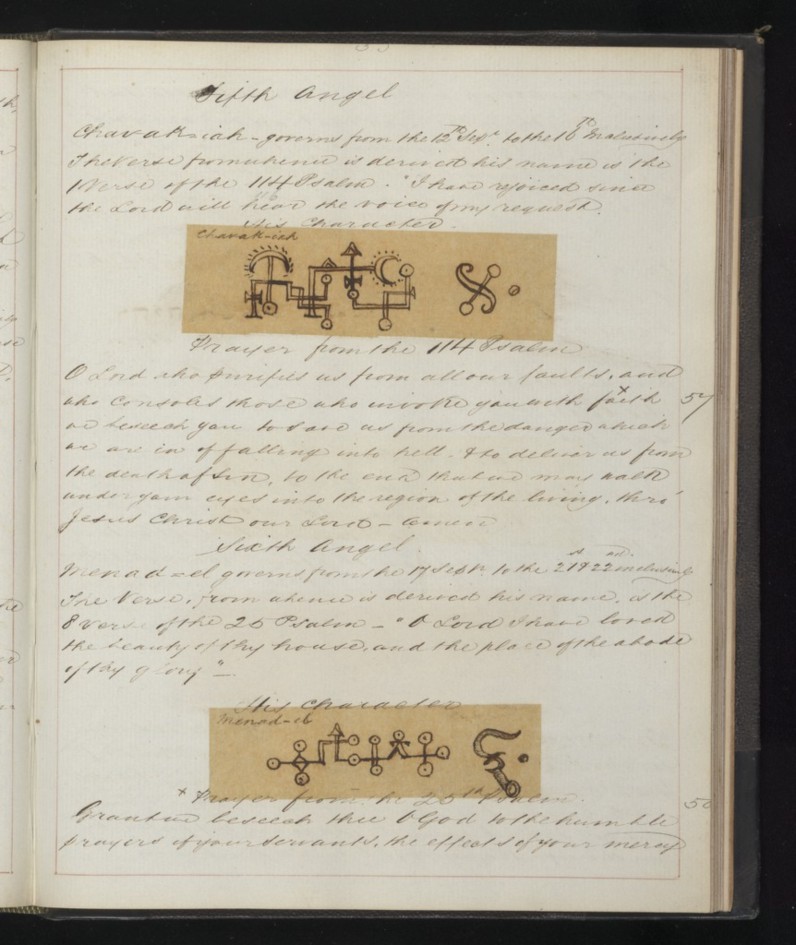 Fifth Angel
Chavak-iah - governs from the 12th Sept. to the 16th inclusively
The Verse from whence is derived his name is the
1 Verse of the 114 Psalm. "I have rejoiced since
the Lord will hear the voice of my request.
His Character.
Chavak-iah
Prayer from the 114 Psalm
O Lord who purifies us from all our faults, and
who consoles those who invoke you with faith
we beseech you to save us from the danger which
we are in of falling into hell. & to deliver us from
the death of Sin, to the end that we may walk
under your eyes into the region of the living, thro'
Jesus Christ our Lord - Amen
Sixth Angel.
Menad-el governs from the 17 Sept. to the 21st & 22nd inclusively
The Verse, from whence is derived his name, is the
8 verse of the 25 Psalm - "O Lord I have loved
the beauty of thy house, and the place of the abode
of thy glory" -
His Character
Menad-el
x Prayer from the 25th Psalm.
Grant we beseech thee O God to the humble
prayers of your servants, the effects of your mercy